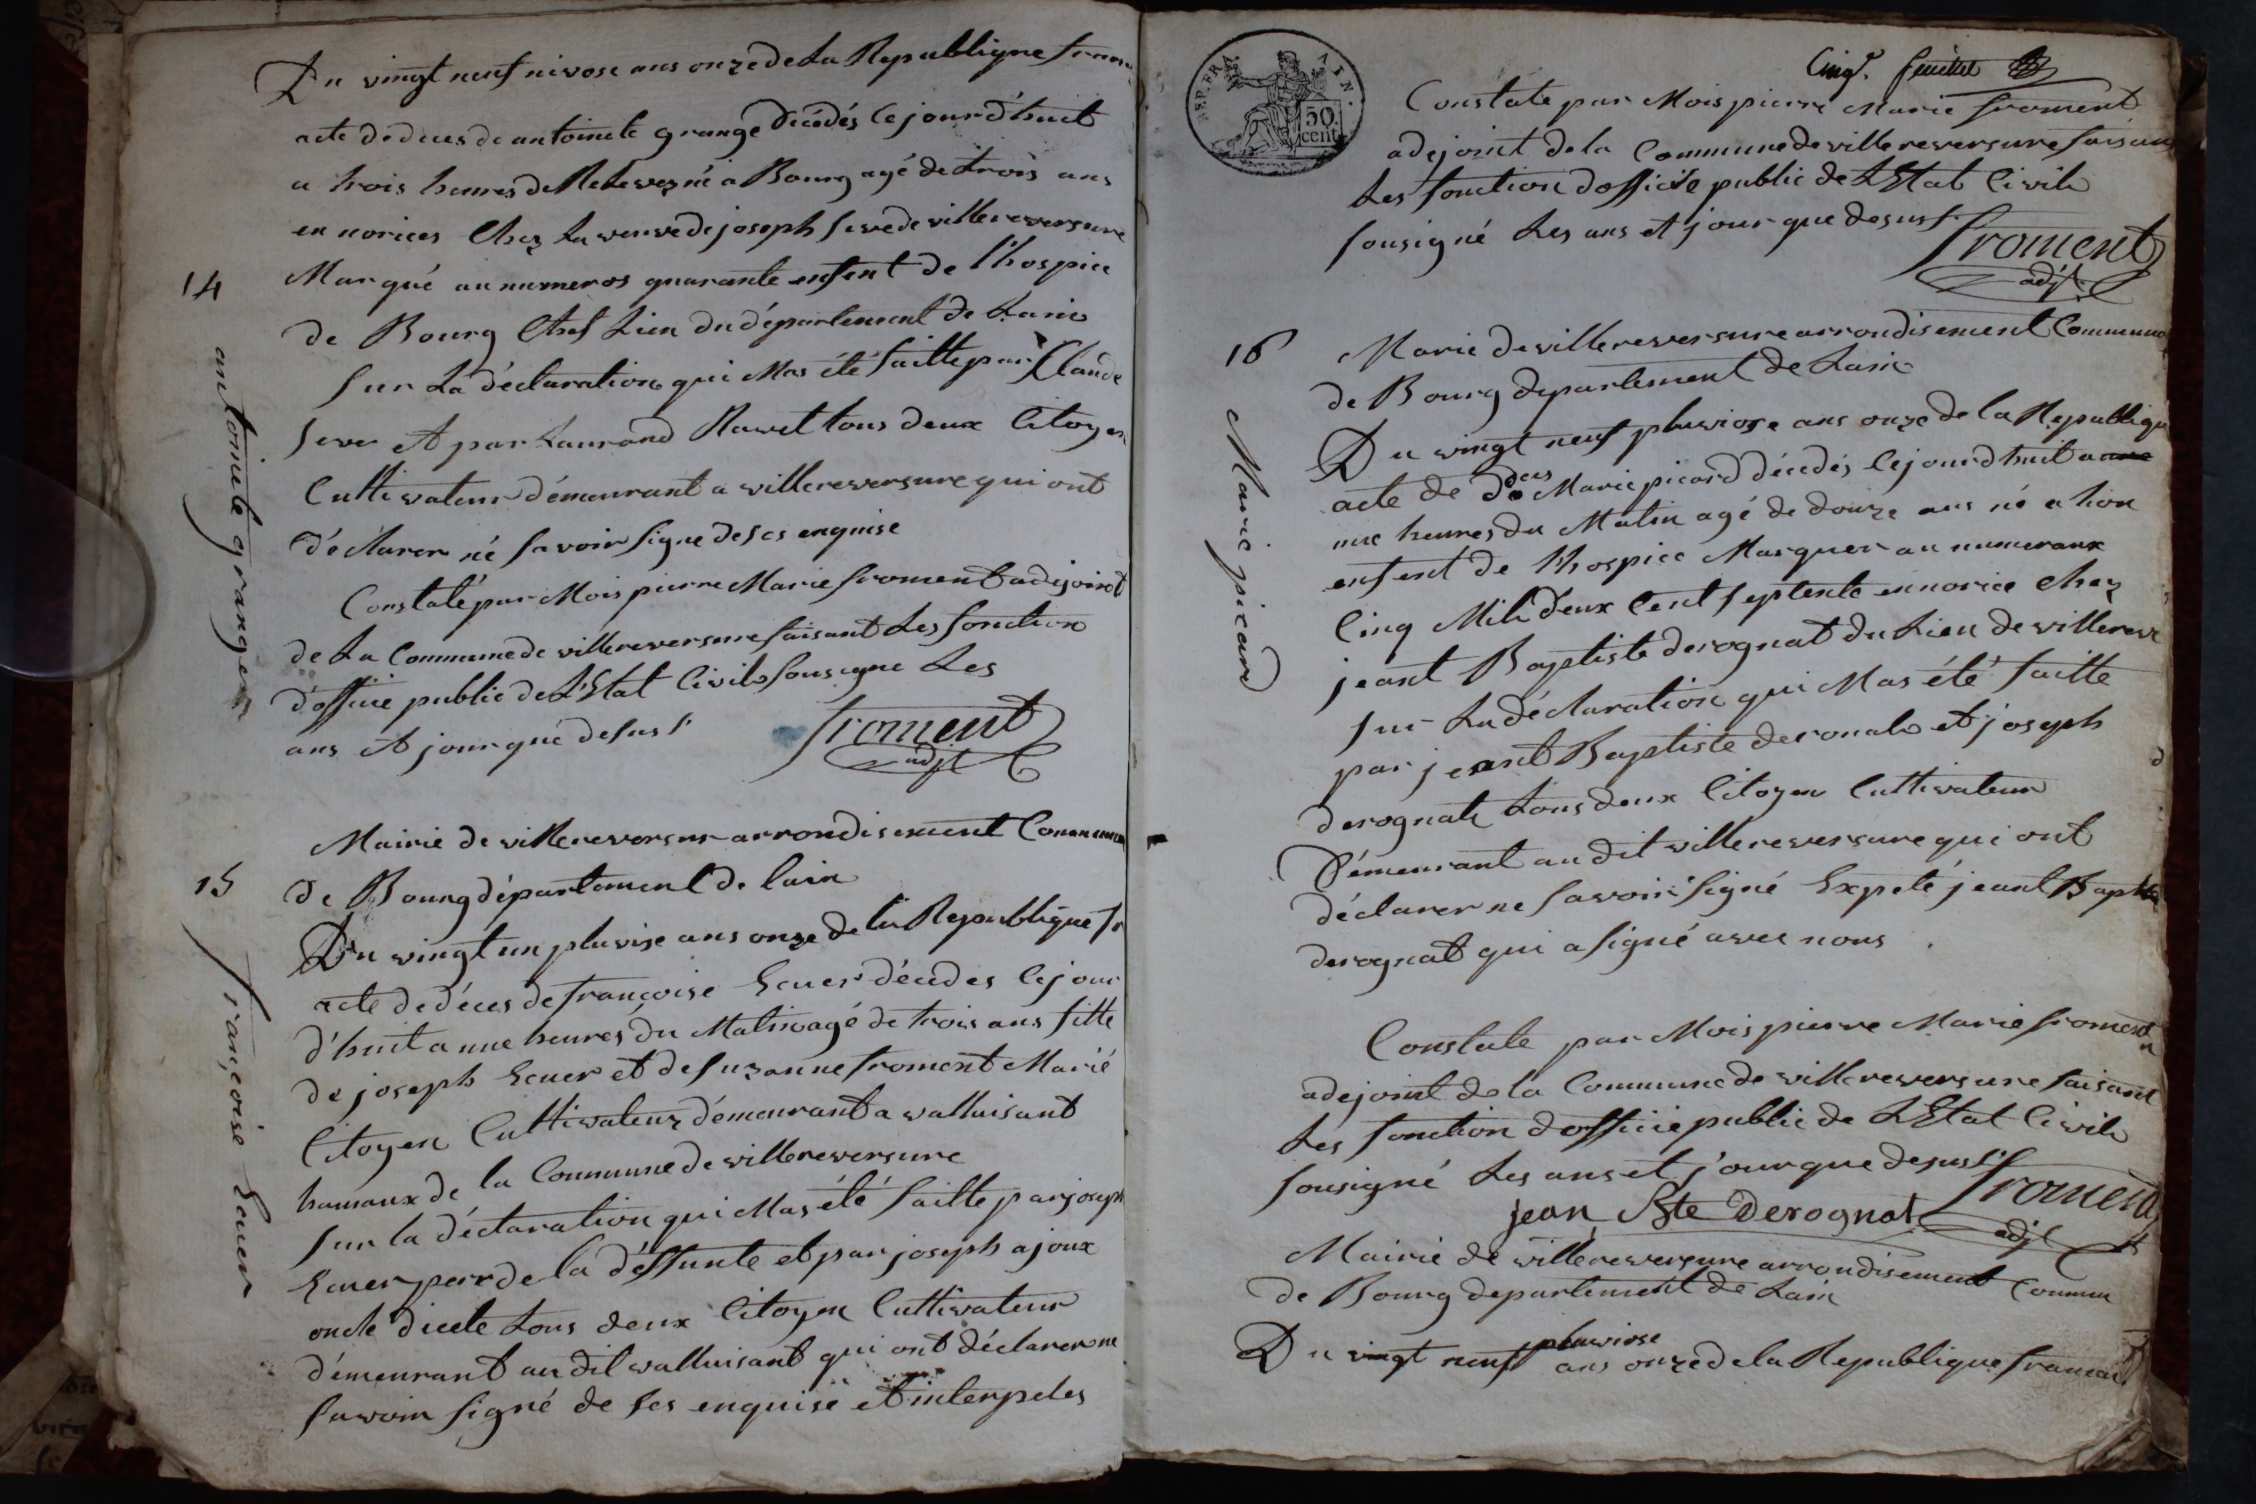 Du vingt neuf nivose ans onze de La Republique
acte de deces de antoinete grange décédés Ce jourd'huit
a trois heures de né a Bourg agé de trois ans
en norices Chez La veuve de joseph seve de villereversure
14
Marqué au numeros quarante enfent de l'hospice
de Bourg Chef Lieu du département de Lain
antoinete granger
Sur La déclaration qui Mas été faitte par Claude
sever et par Laurand Ravet tous deux Citoyen
Cultivateur démeurant a villereversure qui ont
déclarer né savoir signe de ses enquise
Constaté par Mois pierre Marie froment adejoint
de La Commune de villereversure faisant Les fonction
d'officié public de L'Etat Civile sousigne Les
ans et jour qué desus
froment
adjt
Mairie de villereversur arrondisement Commun
15
de Bourg département de lain
Du vingt un pluvise ans onze de la Republique fr
françoise Sever
acte de déces de françoise Sever décedes Cejour
d'huit a une heures du Matin agé de trois ans fille
de joseph Sever et de suzanne froment Marié
Citoyen Cultivateur démeurant a valluisant
hamaux de la Commune de villereversure
sur la déclaration qui Mas été faitte par joseph
Sever per de la déffunte et par joseph ajoux
oncle dicele tous deux Citoyen Cultivateur
démeurant au dit valluisant qui ont déclarer ne
savoir signé de ses enquise et interpeles
REP. FRA AIN.
50
cent
Cinqe. feuillet
Constate par Mois pierre Marie froment
adejoint de la Commune de villereversure faisan
Les fonction doffície public de LEtat Civile
sousigné Les ans et jour que desus
froment
adjt
16
Marie de villereversure arrondisement Communal
de Bourg departement de Lain
Marie picard
Du vingt neuf pluviose ans onze de la Republique
acte de Deces Marie picard décédés Cejourdhuit a
une heures du Matin agé de douze ans né a lion
enfent de l'hospice Marquer au numeraux
Cinq Mile deux Cent septente en norice Chez
jeant Baptiste derognat du Lieu de villereve
sur La déclaration qui Mas été faitte
par jeant Baptiste deronale et joseph
derognate tous deux Citoyen Cultivateur
Démeurant au dit villereversure qui ont
déclarer ne savoir signé Expeté jeant Baptis
derognat qui a signé avec nous
Constate par Mois pierre Marie froment
adejoint de la Commune de villereversure faisant
Les fonction dofficie public de LEtat Civile
sousigné Les ans et jour que desus
froment
jean Bte Derognat
adjt
Mairie de villereversure arrondisement Commun
de Bourg departement de Lain
pluviose
Du vingt neuf ans onze de la Republique francai